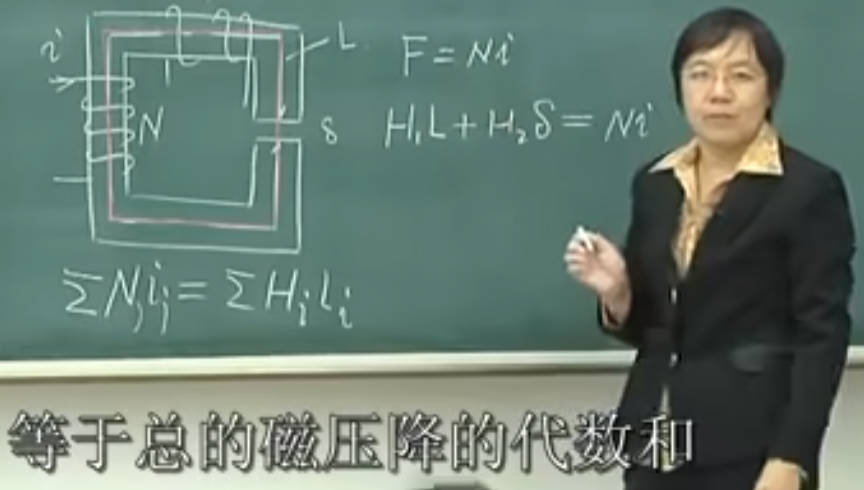 i
N
L
δ
F = Ni
H₁L + H₂δ = Ni
ΣNⱼiⱼ = ΣHᵢLᵢ
等于总的磁压降的代数和